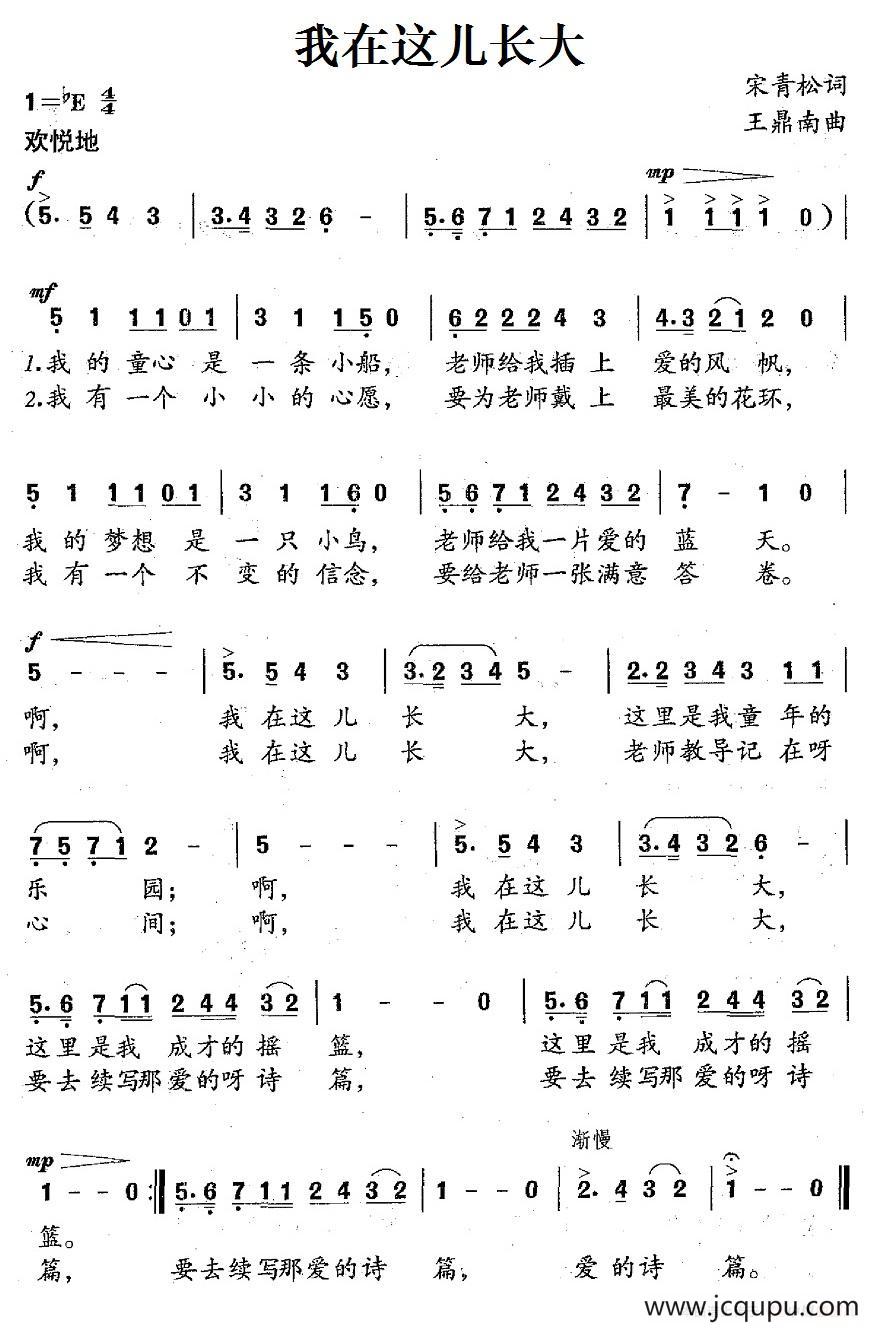 我在这儿长大
宋青松词
1=♭E 4/4
王鼎南曲
欢悦地
f
mp
(5. 5 4 3 | 3.4 3 2 6 - | 5.6 7 1 2 4 3 2 | 1 1 1 1 0 ) |
mf
5 1 1 1 0 1 | 3 1 1 5 0 | 6 2 2 2 4 3 | 4.3 2 1 2 0 |
1.我的童心是一条小船, 老师给我插上爱的风帆,
2.我有一个小小的心愿, 要为老师戴上最美的花环,
5 1 1 1 0 1 | 3 1 1 6 0 | 5 6 7 1 2 4 3 2 | 7 - 1 0 |
我的梦想是一只小鸟, 老师给我一片爱的蓝天。
我有一个不变的信念, 要给老师一张满意答卷。
f
5 - - - | 5. 5 4 3 | 3.2 3 4 5 - | 2.2 3 4 3 1 1 |
啊, 我在这儿长大, 这里是我童年的
啊, 我在这儿长大, 老师教导记在呀
7 5 7 1 2 - | 5 - - - | 5. 5 4 3 | 3.4 3 2 6 - |
乐园; 啊, 我在这儿长大,
心间; 啊, 我在这儿长大,
5.6 7 1 1 2 4 4 3 2 | 1 - - 0 | 5.6 7 1 1 2 4 4 3 2 |
这里是我成才的摇篮, 这里是我成才的摇
要去续写那爱的呀诗篇, 要去续写那爱的呀诗
mp
渐慢
1 - - 0 :‖ 5.6 7 1 1 2 4 3 2 | 1 - - 0 | 2. 4 3 2 | 1 - - 0 ‖
篮。
篇, 要去续写那爱的诗篇, 爱的诗篇。
www.jcqupu.com